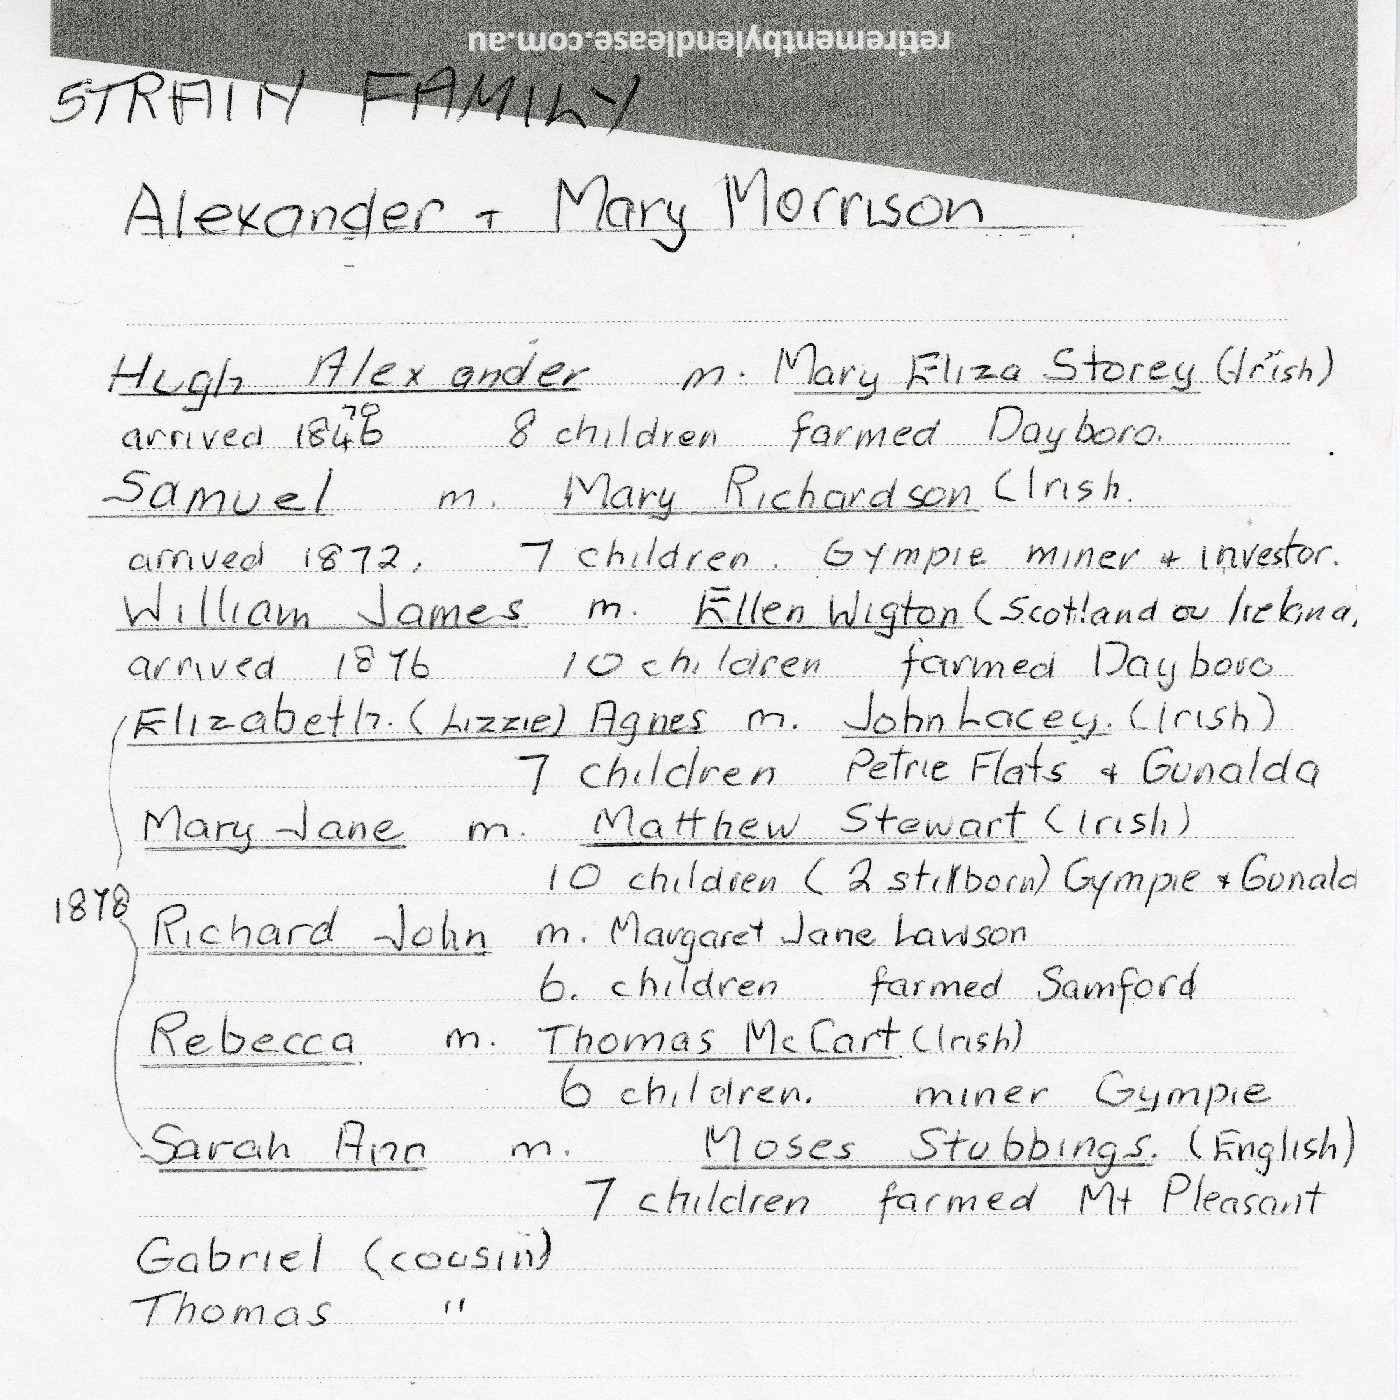 retirementbylendlease.com.au
STRAIN FAMILY
Alexander + Mary Morrison
Hugh Alexander m. Mary Eliza Storey (Irish)
70
arrived 1846 8 children farmed Dayboro.
Samuel m. Mary Richardson (Irish.
arrived 1872. 7 children. Gympie miner + investor.
William James m. Ellen Wigton (Scotland or
arrived 1876 10 children farmed Dayboro
Elizabeth. (Lizzie) Agnes m. John Lacey. (Irish)
7 children Petrie Flats + Gunalda
Mary Jane m. Matthew Stewart (Irish)
10 children (2 stillborn) Gympie + Gunald
1878
Richard John m. Margaret Jane Lawson
6. children farmed Samford
Rebecca m. Thomas McCart (Irish)
6 children. miner Gympie
Sarah Ann m. Moses Stubbings. (English)
7 children farmed Mt Pleasant
Gabriel (cousin)
Thomas "